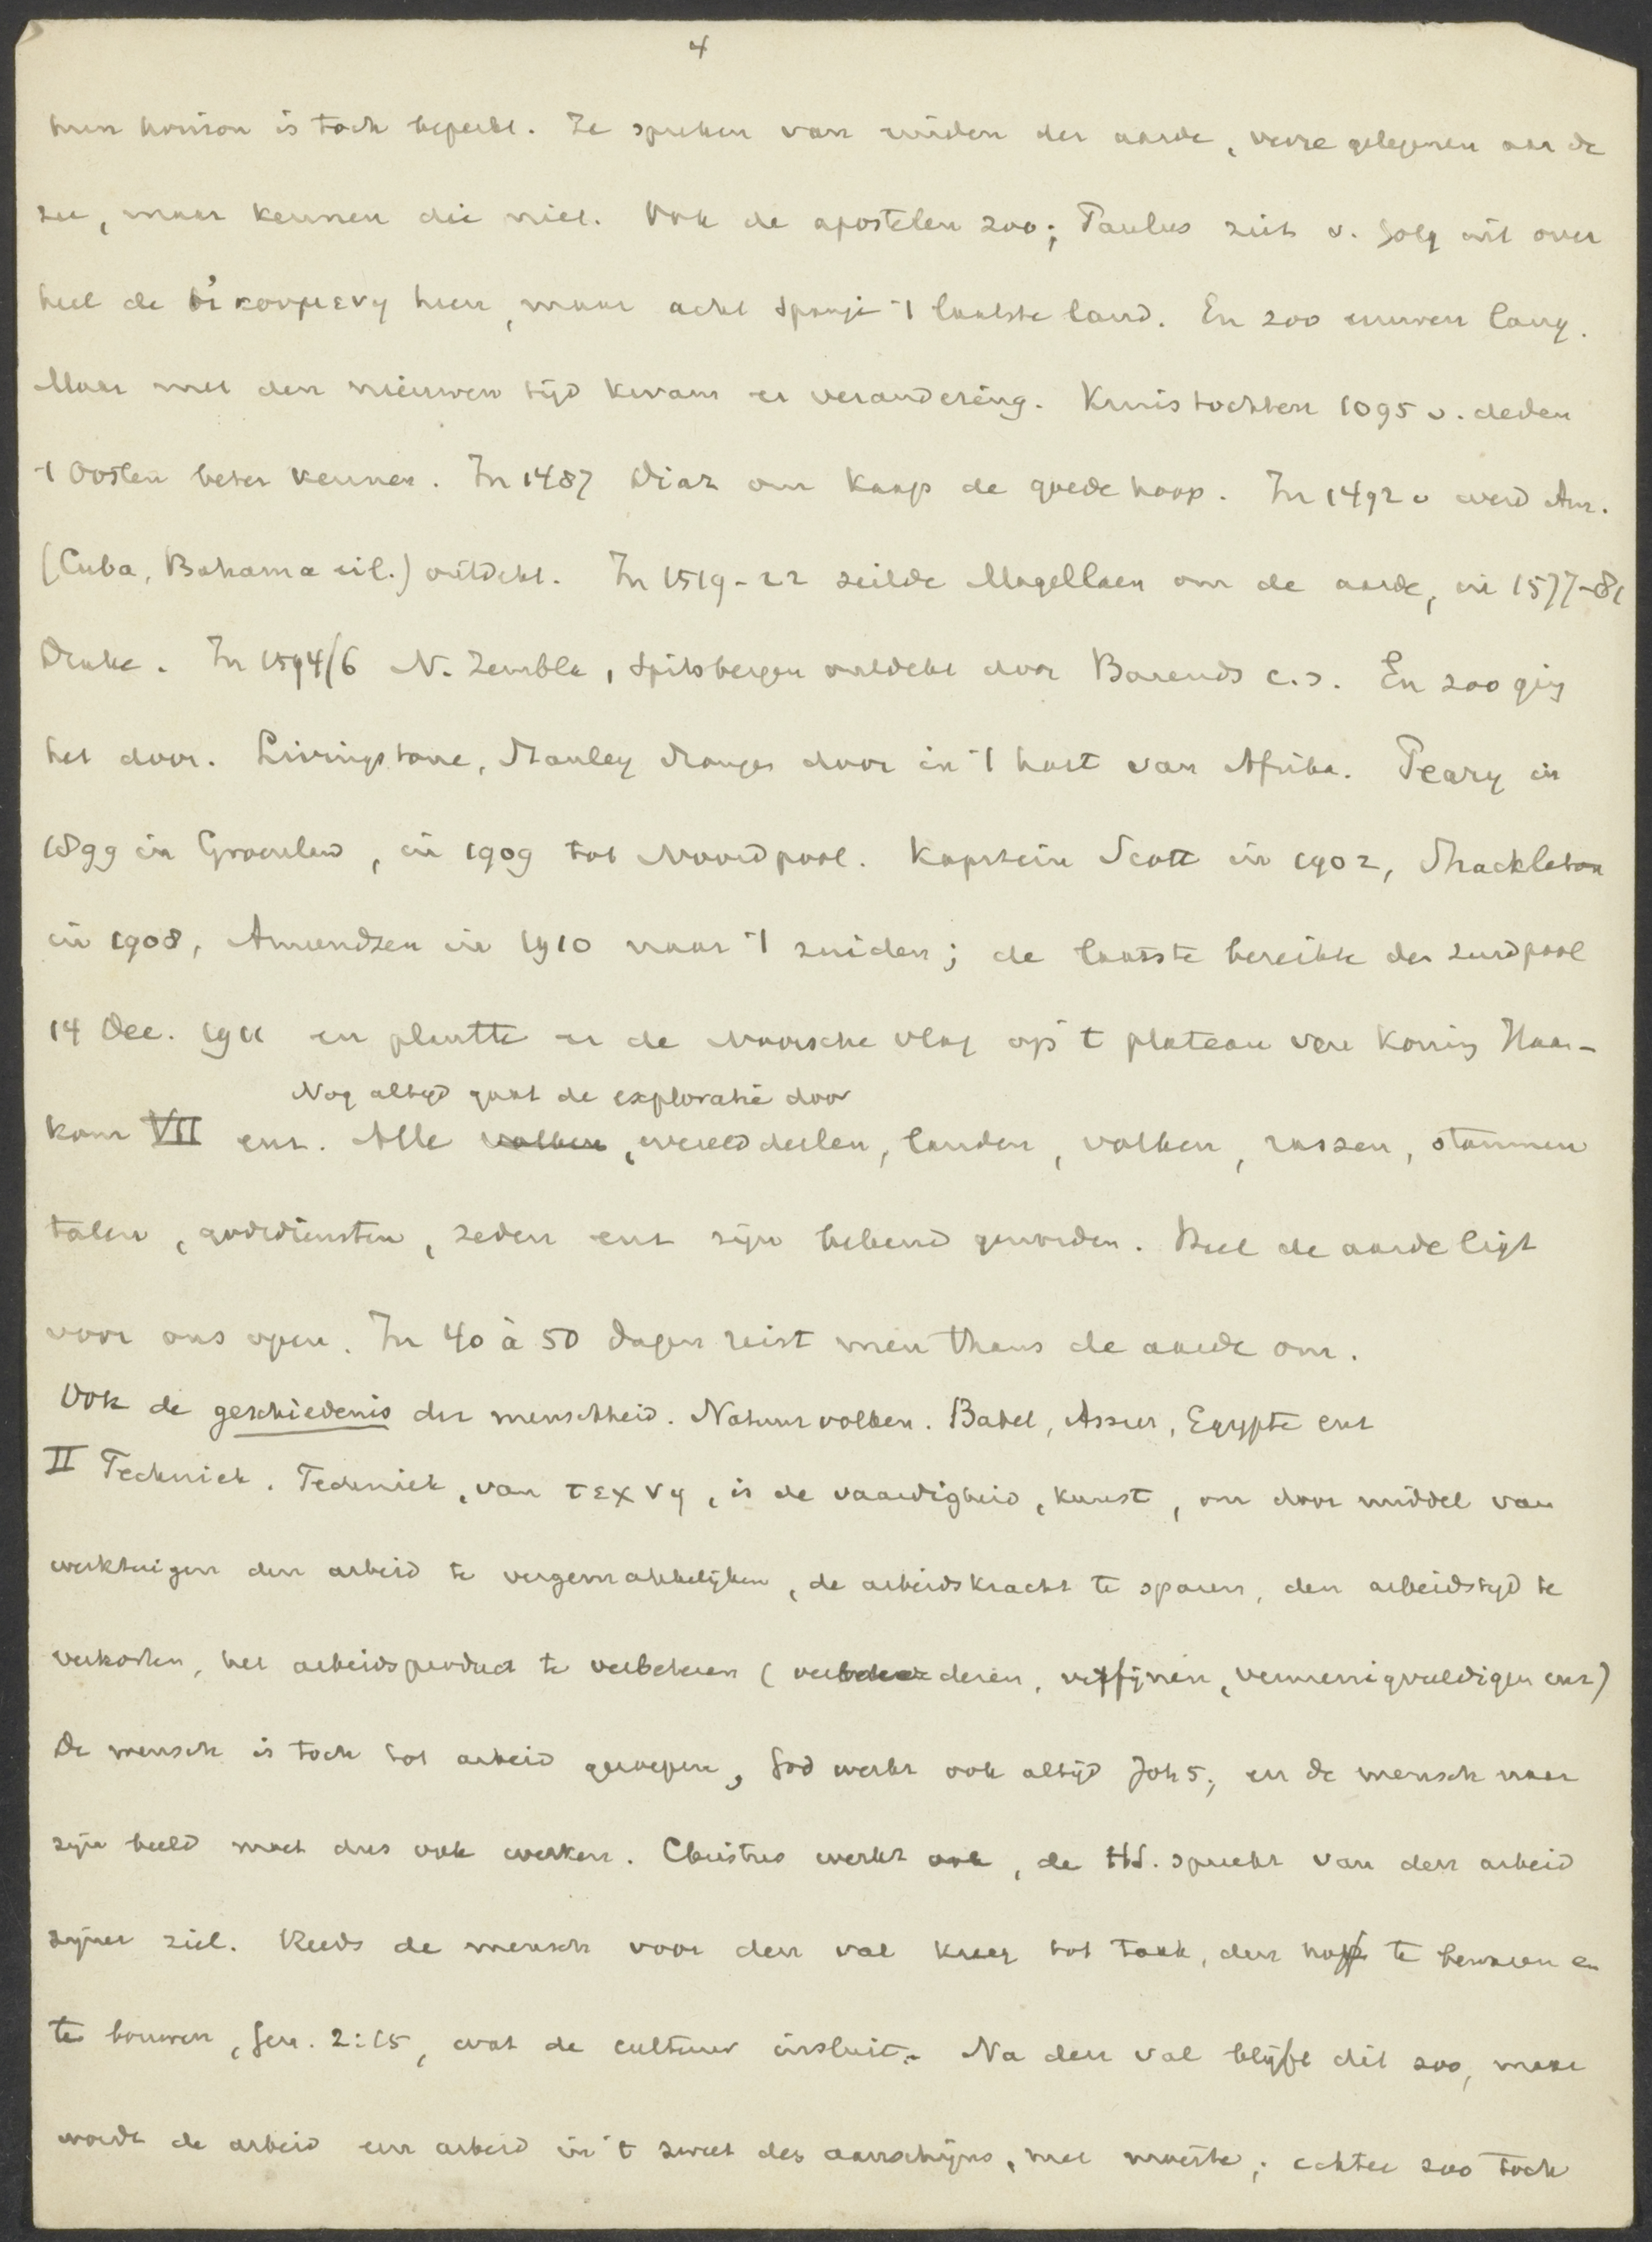 4
hun horizon is toch beperkt. Ze spreken van einden der aarde, verre gelegenen aan de
zee, maar kennen die niet. Ook de apostelen zoo; Paulus ziet v. Golg uit over
heel de οἰκουμενη heen, maar acht Spanje 't laatste land. En zoo eeuwen lang.
Maar met den nieuwen tijd kwam er verandering. Kruistochten 1095 v. deden
't Oosten beter kennen. In 1487 Diaz om Kaap de goede hoop. In 1492 v werd Am.
(Cuba, Bahama eil.) ontdekt. In 1519-22 zeilde Magellaen om de aarde, in 1577-81
Drake. In 1594/6 N. Zembla, Spitsbergen ontdekt door Barends c.s. En zoo ging
het door. Livingstone, Stanley drongen door in 't hart van Afrika. Peary in
1899 in Groenland, in 1909 tot Noordpool. Kapitein Scott in 1902, Shackleton
in 1908, Amundsen in 1910 naar 't zuiden; de laatste bereikte den zuidpool
14 Dec. 1911 en plantte er de Noorsche vlag op 't plateau van Koning Haa-
Nog altijd gaat de exploratie door
kon VII enz. Alle volken, werelddeelen, landen, volken, rassen, stammen
talen, godsdiensten, zeden enz zijn bekend geworden. Heel de aarde ligt
voor ons open. In 40 à 50 dagen reist men thans de aarde om.
Ook de geschiedenis der menschheid. Natuurvolken. Babel, Assur, Egypte enz
II Techniek. Techniek, van τεχνη, is de vaardigheid, kunst, om door middel van
werktuigen den arbeid te vergemakkelijken, de arbeidskracht te sparen, den arbeidstijd te
verkorten, het arbeidsproduct te verbeteren (veranderen, verfijnen, vermenigvuldigen enz)
De mensch is toch tot arbeid geroepen, God werkt ook altijd Joh 5; en de mensch naar
zijn beeld moet dus ook werken. Christus werkt ook, de HS. spreekt van den arbeid
zijner ziel. Reeds de mensch voor den val kreeg tot taak, den hof te bewaren en
te bouwen, Gen. 2:15, wat de cultuur insluit. Na den val blijft dit zoo, maar
wordt de arbeid een arbeid in 't zweet des aanschijns, met moeite; echter zoo toch